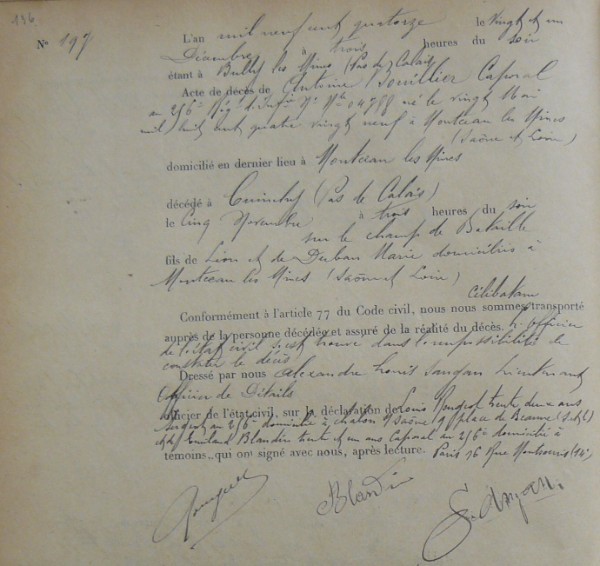 136
N° 197
L'an mil neuf cent quatorze le vingt et un
Décembre à trois heures du soir
étant à Bully les Mines (Pas de Calais)
Acte de décès de Antoine Caporal
au 256e Rég. d'Inf. N° Mle 04788 né le vingt Mai
mil huit cent quatre vingt neuf à Montceau les Mines
(Saône et Loire)
domicilié en dernier lieu à Montceau les Mines
décédé à (Pas de Calais)
le cinq Novembre à trois heures du soir
sur le champ de Bataille
fils de Léon et de Marie domiciliés à
Montceau les Mines (Saône et Loire)
Célibataire
Conformément à l'article 77 du Code civil, nous nous sommes transporté
auprès de la personne décédée et assuré de la réalité du décès. L'officier
de l'état civil s'est trouvé dans l'impossibilité de
constater le décès
Dressé par nous Alexandre Louis Lieutenant
Officier de Détails
officier de l'état civil, sur la déclaration de Louis trente deux ans
Sergent au 256e domicilié à Chalon s/Saône 9 place de Beaune (S.&L.)
et de Blandin trente et un ans Caporal au 256e domicilié à
témoins qui ont signé avec nous, après lecture. Paris 16 Rue (14e)
Blandin